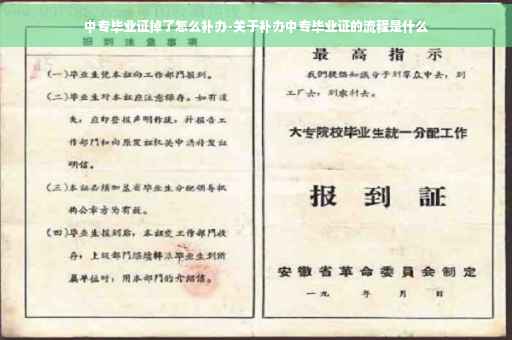 中专毕业证掉了怎么补办-关于补办中专毕业证的流程是什么
报到注意事项
(一)毕业生凭本证向工作部门报到。
(二)毕业生对本证应注意保存。如有遗
失，应即登报声明作废，并报告工
作部门和向原发证机关申请补发证
明信。
(三)本证必须加盖省毕业生分配领导机
构公章方为有效。
(四)毕业生报到后，本证交工作部门收
存；上级部门继续转派毕业生到所
属单位时，用本部门的介绍信。
最高指示
我们提倡知识分子到群众中去，到
工厂去，到农村去。
大专院校毕业生统一分配工作
报到证
安徽省革命委员会制定
一九 年 月 日